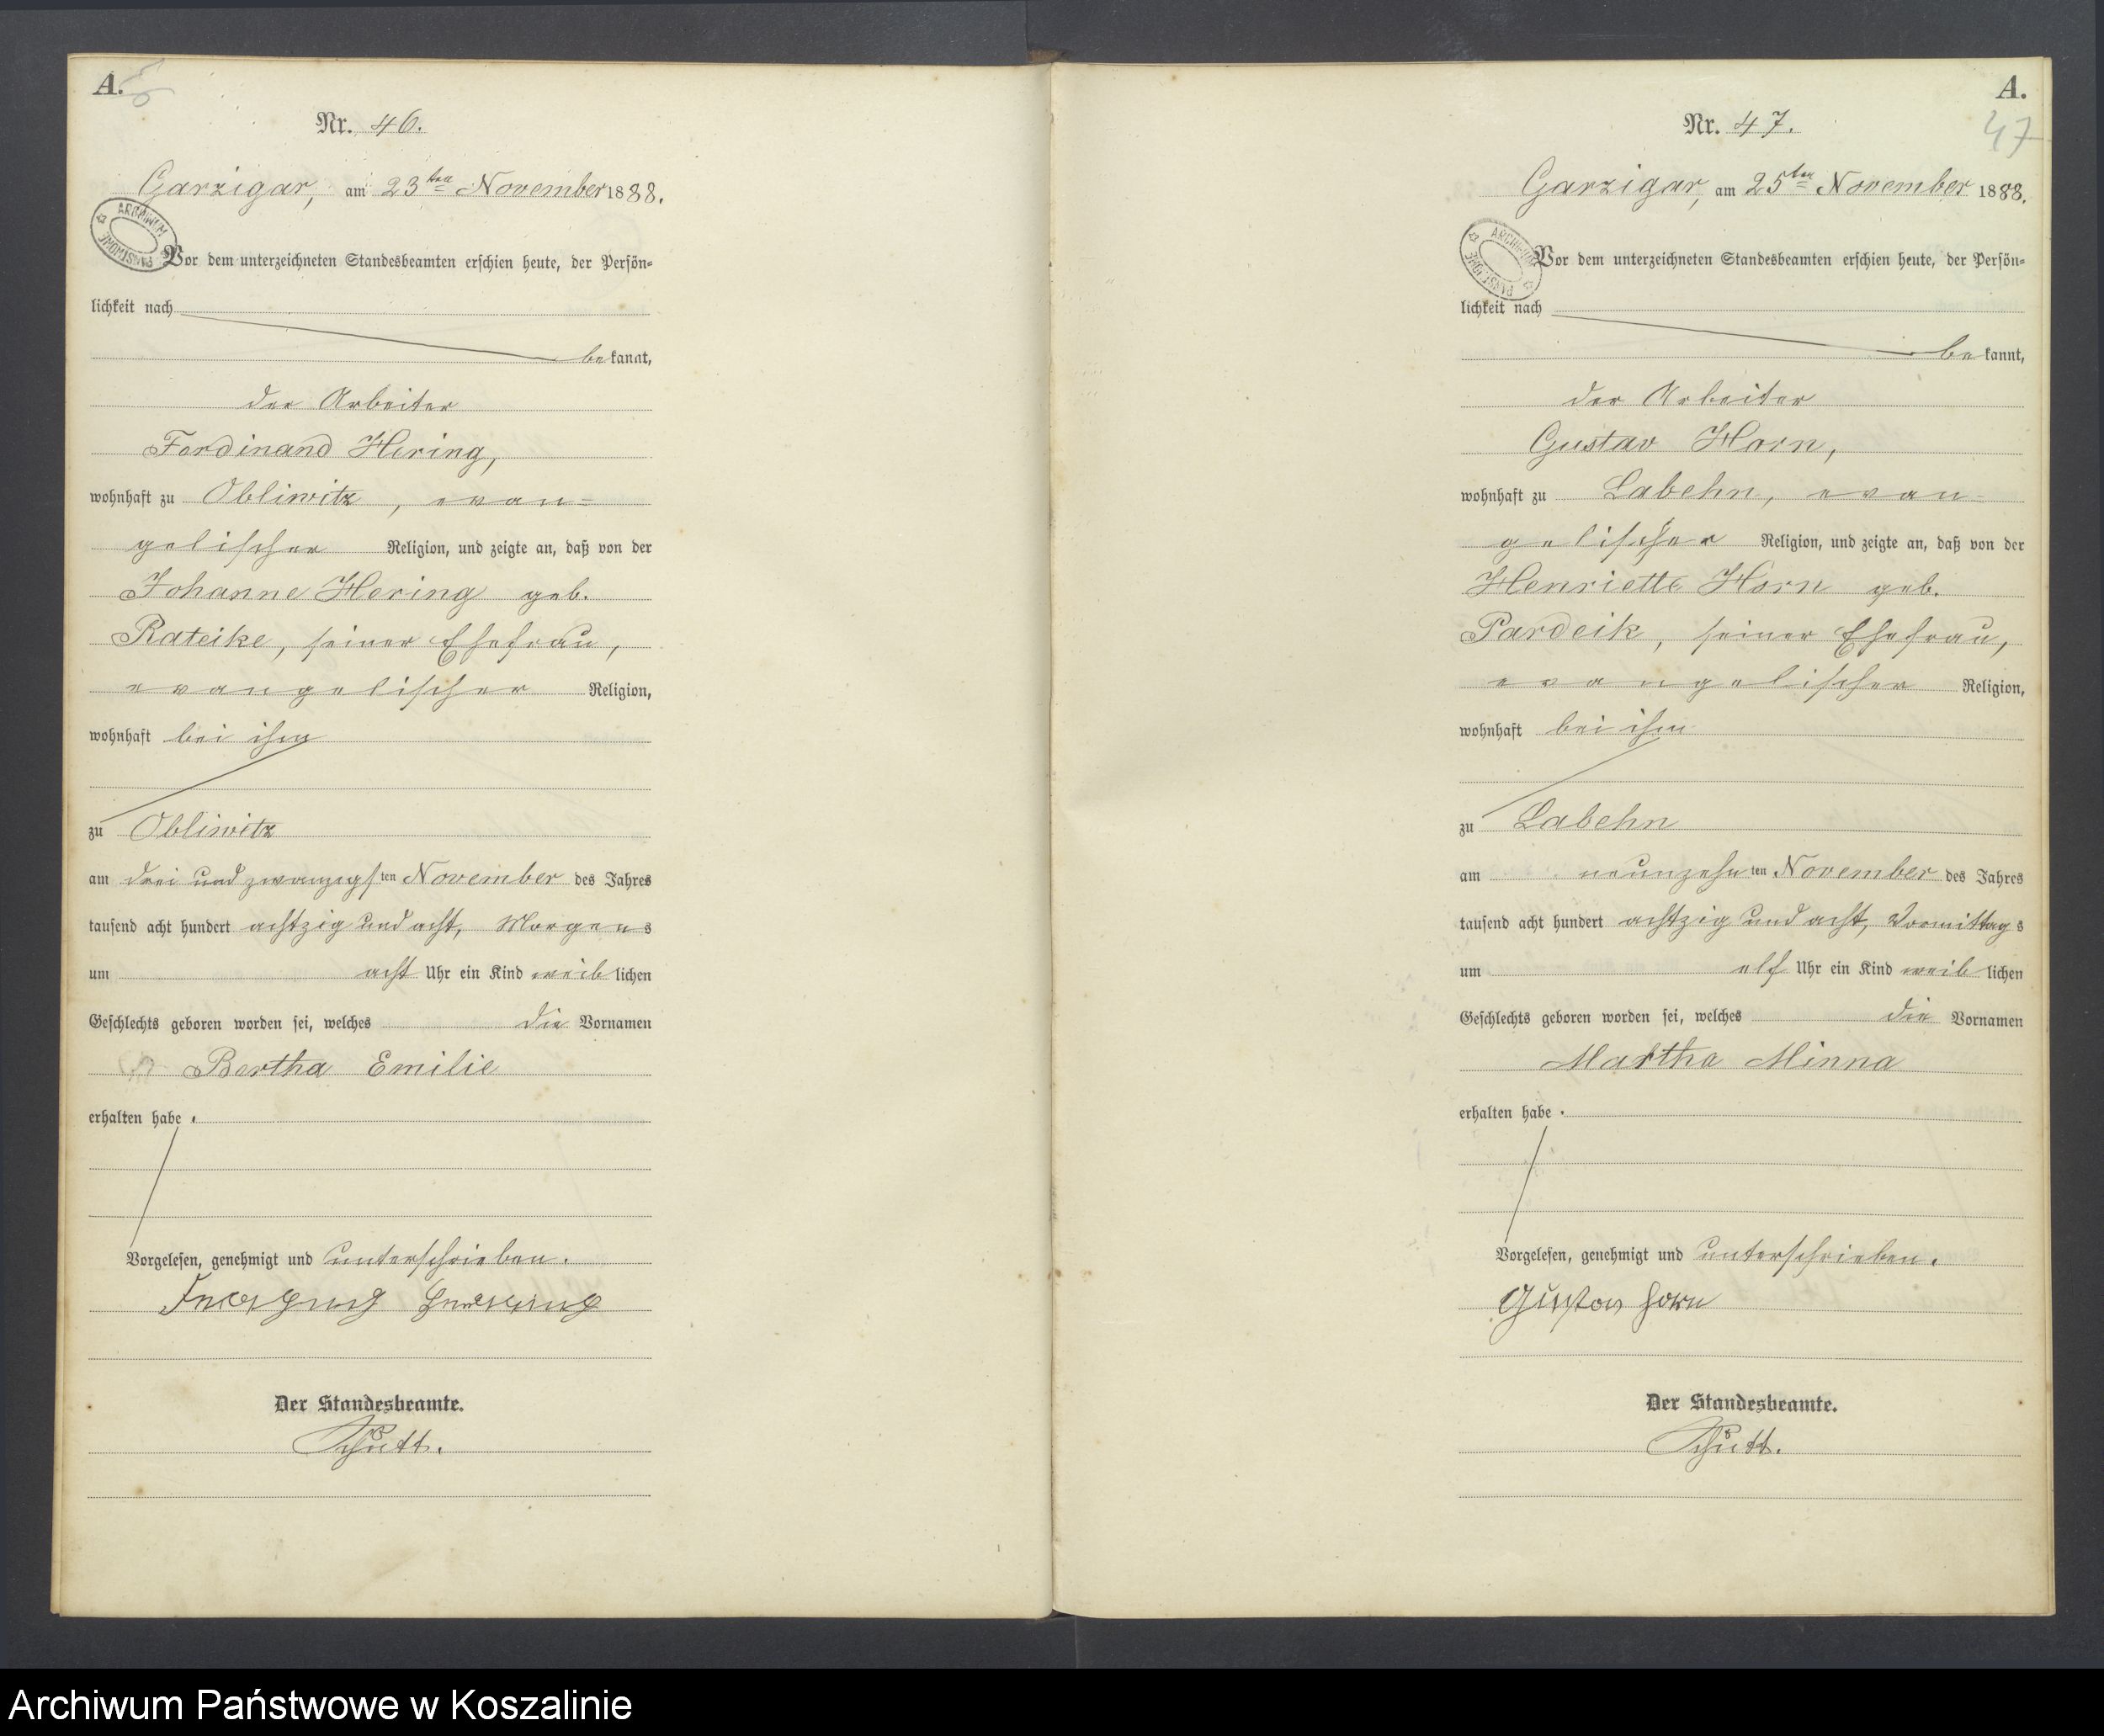 A.
Nr. 46.
Garzigar, am 23ten November 1888.
ARCHIWUM PAŃSTWOWE
Vor dem unterzeichneten Standesbeamten erschien heute, der Persön=
lichkeit nach
bekannt,
der Arbeiter
Ferdinand Hering,
wohnhaft zu Obliwitz, evan=
gelischer Religion, und zeigte an, daß von der
Johanne Hering geb.
Rateike, seiner Ehefrau,
evangelischer Religion,
wohnhaft bei ihm
zu Obliwitz
am drei und zwanzigsten November des Jahres
tausend acht hundert achtzig und acht, Morgens
um acht Uhr ein Kind weiblichen
Geschlechts geboren worden sei, welches die Vornamen
Bertha Emilie
erhalten habe.
Vorgelesen, genehmigt und unterschrieben.
Der Standesbeamte.
Schütt.
A.
47
Nr. 47.
Garzigar, am 25ten November 1888.
ARCHIWUM PAŃSTWOWE
Vor dem unterzeichneten Standesbeamten erschien heute, der Persön=
lichkeit nach
bekannt,
der Arbeiter
Gustav Horn,
wohnhaft zu Labehn, evan=
gelischer Religion, und zeigte an, daß von der
Henriette Horn geb.
Pardeik, seiner Ehefrau,
evangelischer Religion,
wohnhaft bei ihm
zu Labehn
am neunzehnten November des Jahres
tausend acht hundert achtzig und acht, Vormittags
um elf Uhr ein Kind weiblichen
Geschlechts geboren worden sei, welches die Vornamen
Martha Minna
erhalten habe.
Vorgelesen, genehmigt und unterschrieben.
Gustav Horn
Der Standesbeamte.
Schütt.
Archiwum Państwowe w Koszalinie